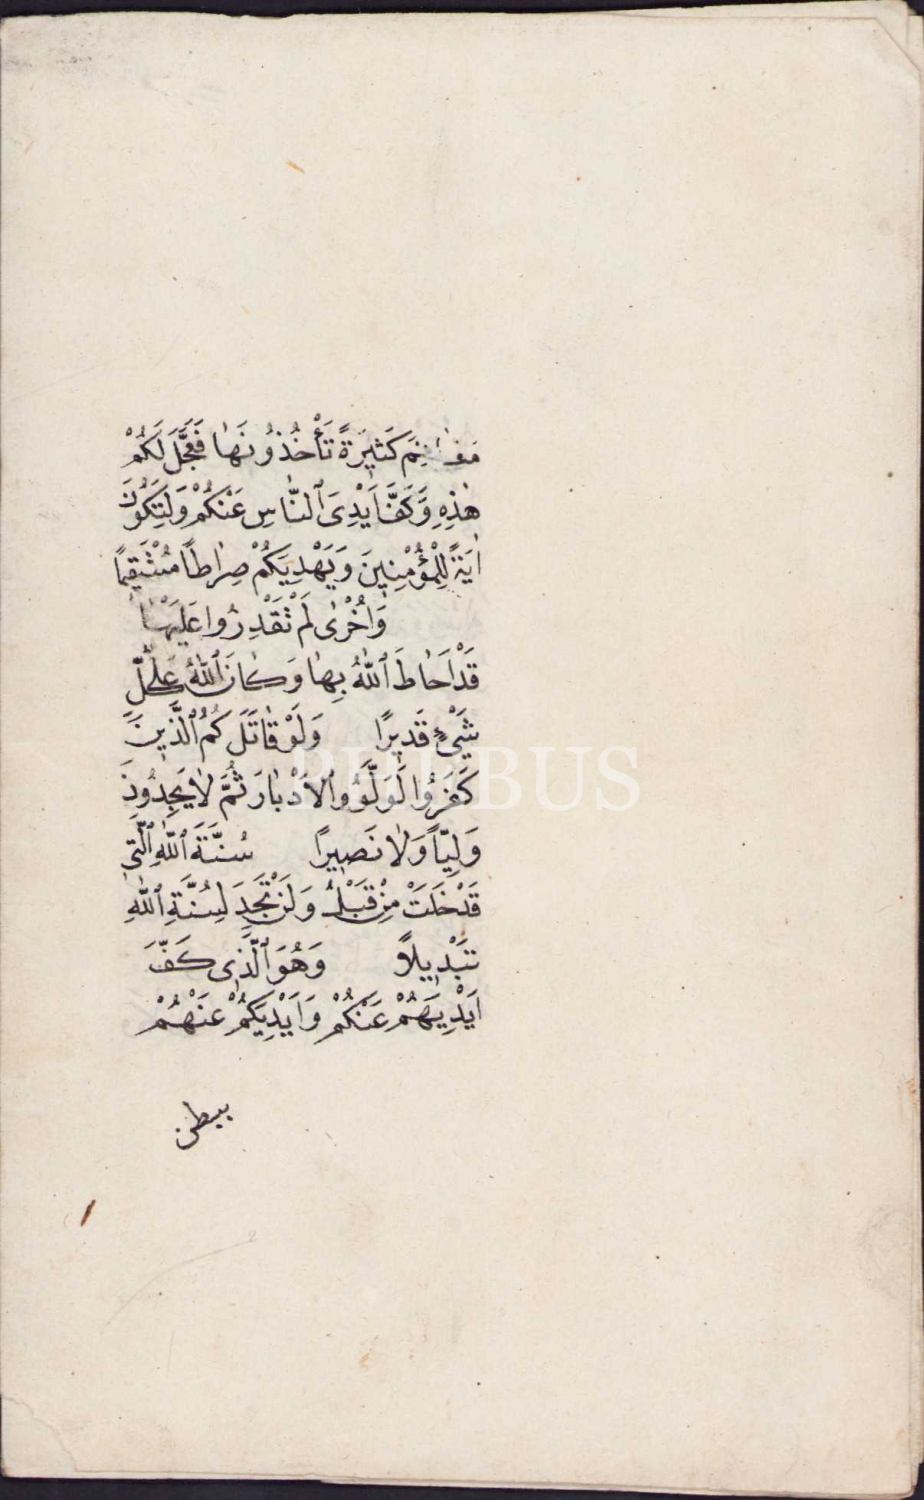 مَغَانِمَ كَثِيرَةً تَأْخُذُونَهَا فَعَجَّلَ لَكُمْ
هٰذِهِ وَكَفَّ اَيْدِىَ ٱلنَّاسِ عَنْكُمْ وَلِتَكُونَ
اٰيَةً لِلْمُؤْمِنِينَ وَيَهْدِيَكُمْ صِرَاطًا مُسْتَقِيمًا
وَاُخْرٰى لَمْ تَقْدِرُوا عَلَيْهَا
قَدْ اَحَاطَ ٱللّٰهُ بِهَا وَكَانَ ٱللّٰهُ عَلٰى كُلِّ
شَىْءٍ قَدِيرًا وَلَوْ قَاتَلَكُمُ ٱلَّذِينَ
كَفَرُوا لَوَلَّوُا ٱلْاَدْبَارَ ثُمَّ لَا يَجِدُونَ
وَلِيًّا وَلَا نَصِيرًا سُنَّةَ ٱللّٰهِ ٱلَّتِى
قَدْ خَلَتْ مِنْ قَبْلُ وَلَنْ تَجِدَ لِسُنَّةِ ٱللّٰهِ
تَبْدِيلًا وَهُوَ ٱلَّذِى كَفَّ
اَيْدِيَهُمْ عَنْكُمْ وَاَيْدِيَكُمْ عَنْهُمْ
ببطن